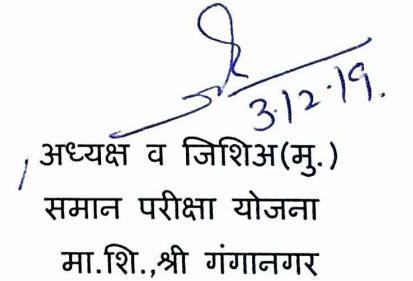 3.12.19.
अध्यक्ष व जिशिअ(मु.)
समान परीक्षा योजना
मा.शि.,श्री गंगानगर